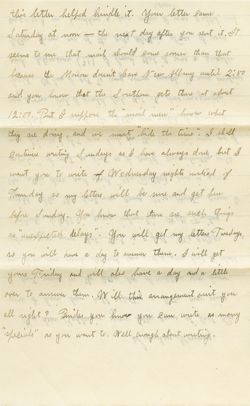 this letter helped kindle it. Your letter came
Saturday at noon — the next day after you sent it. It
seems to me that mail should come sooner than that
because the Monon doesnt leave New Albany until 2:50
and you know that the Southern gets there at about
12:01. But I suppose the "mail men" know what
they are doing, and we must "bide the time". I shall
continue writing Sundays as I have always done but I
want you to write Wednesday nights instead of
Thursday as my letters will be sure and get here
before Sunday. You know that there are such things
as "unexpected delays". You will get my letters Tuesdays,
so you will have a day to answer them. I will get
yours Friday and will also have a day and a little
over to answer them. Will this arrangement suit you
all right? Besides you know you can write as many
"specials" as you want to. Well, enough about writing.